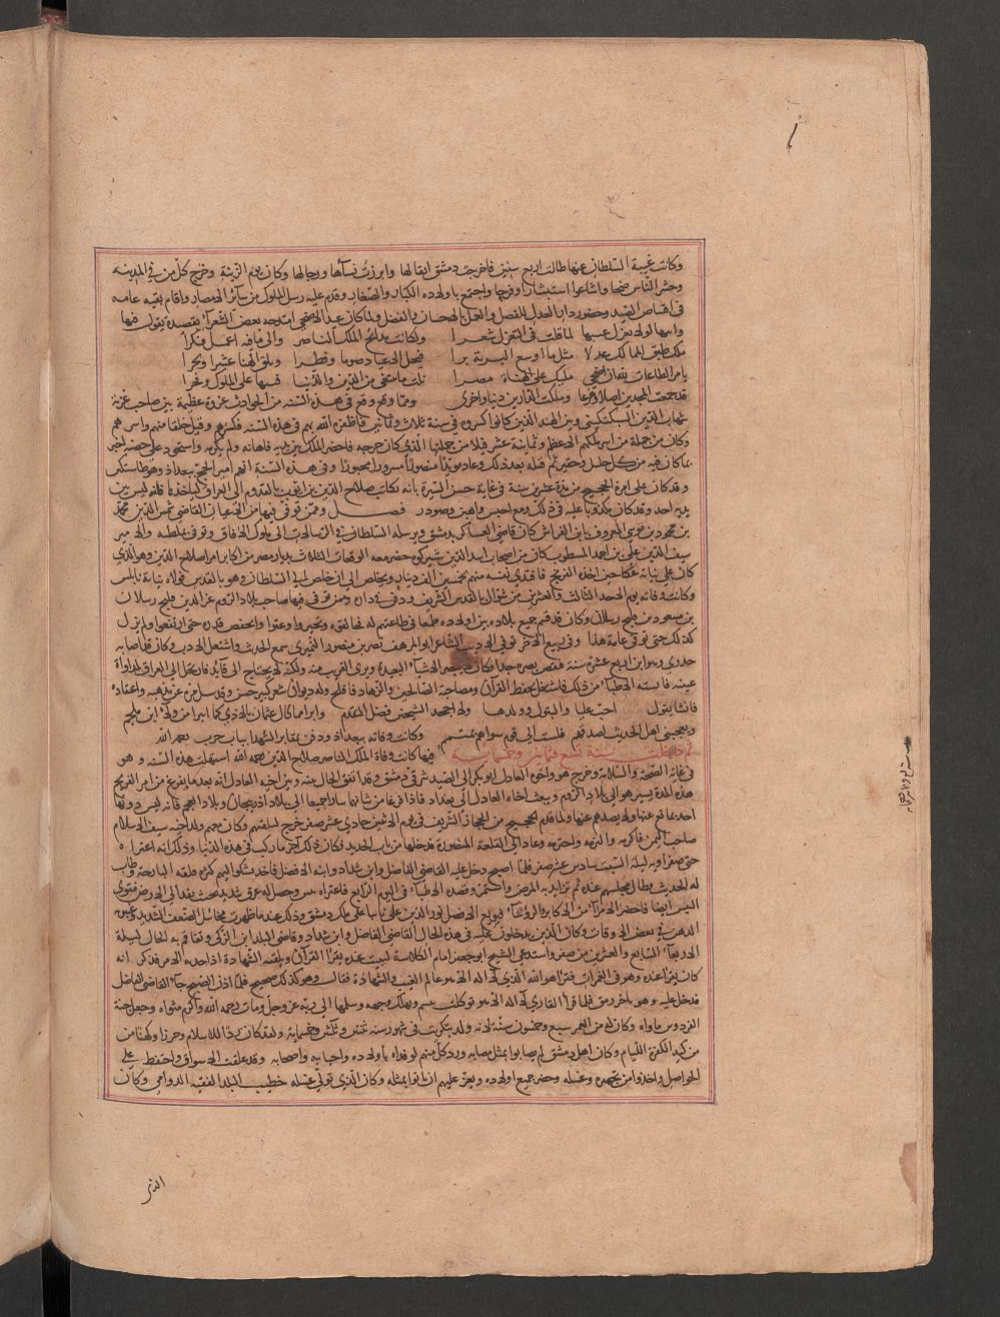 وكانت غيبة السلطان عنها طالت اربع سنين فاخرجت دمشق اثقالها وابرزت نسآها ورجالها وكان يوم الزينة وخرج كل من في المدينه
وحشر الناس ضحا واشاعوا استبشارا وفرحا واجتمع باولاده الكبار والصغار وقدم عليه رسل الملوك من سائر الامصار واقام بقيه عامه
في اقتناص الصيد وحضور دار العدل للفصل والعمل بالاحسان والفضل ولما كان عيد الاضحى امتدحه بعض الشعرآء بقصيدة يقول فيها
وابيها لولا تغزل عينيها لما قلت في التغزل شعرا ولكانت مدايح الملك الناصر والى ما فيه اعمل فكرا
ملك طبق الممالك عدلا مثل ما اوسع البرية برا فيحل الاعياد صوما وفطرا ويلقى الهنا عشرا ونحرا
يامر بالطاعات لله ان اضحى مليك على المناه مصرا نلت ما تبتغي من الدين والدنيا فتيها على الملوك وفخرا
قد جمعت المجدين اصلا وفرعا وملكت الدارين دنيا واخرى ومما وقع في هذه السنه من الحوادث غزوة عظيمة بين صاحب غزنة
شهاب الدين السبكتكيني وبين الهند الذين كانوا كسروه في سنة ثلاث وثمانين فاظفره الله بهم في هذه السنه فكسرهم وقتل خلقا منهم واسر هم
وكان من جملة من اسر ملكهم الاعظم وثمانية عشر فيلا من جملتها الذي كان جرحه فاحضر الملك بين يديه فاهانه ولم يكرمه واستحوذ على حصنه واخبر
بما كان فيه من كل جليل وحقير ثم قتله بعد ذلك وعاد مويدا منصورا مسرورا محبورا وفي هذه السنة اتهم امير الحج ببغداد وهو طاشتكين
وقد كان على امرة الحجيج من مدة عشرين سنة في غاية حسن السيرة بانه يكاتب صلاح الدين بن ايوب بالقدوم الى العراق لياخذها فانه ليس بين
يديه احد وقد كان مكذوبا عليه في ذلك ومع هذا حبس واهين وصودر فصل وممن توفي فيها من الاعيان القاضي شمس الدين محمد
بن محمد بن موسى المعروف بابن الفراش كان قاضي العساكر بدمشق ويرسله السلطان في الرسالات الى ملوك الافاق وتوفي بملطيه والامير
سيف الدين علي بن احمد المشطوب كان من اصحاب اسد الدين شيركوه حضر معه الوقعات الثلاث بديار مصر من اكابر امرا صلاح الدين وهو الذي
كان على نيابة عكا حين اخذه الفرنج فافتدى نفسه منهم بخمسين الف دينار وتخلص الى ان خلص الى السلطان وهو بالقدس فولاه نيابة نابلس
وكانت وفاته يوم الاحد الثالث والعشرين من شوال بالقدس الشريف ودفن في داره وممن توفي فيها صاحب بلاد الروم عز الدين قليج رسلان
بن مسعود بن قليج رسلان وكان قد قسم جميع بلاده بين اولاده طمعا في طاعتهم له فخالفوه وتجبروا وعتوا وخفضوا قدره حتى ارتفعوا ولم يزل
كذلك حتى توفي عامه هذا وفي ربيع الاخر توفي الاديب الشاعر ابو المرهف نصر بن منصور النميري سمع الحديث واشتغل بالادب وكان قد اصابه
جدري وهو ابن اربع عشرة سنة فنقص بصره جدا فكان لا يبصر الاشيآء البعيدة ويرى القريب منه ولكن لا يحتاج الى قايد فارتحل الى العراق لمداواة
عينيه فايسته الاطبآء من ذلك فاشتغل بحفظ القرآن ومصاحبة الصالحين والزهاد فافلح وله ديوان شعر كبير حسن وقد سئل مرة عن مذهبه واعتقاده
فانشا يقول احب عليا والبتول وولدها ولا اجحد الشيخين فضل التقدم وابرا ممن نال عثمان بالاذى كما ابرا من ولاء ابن ملجم
ويعجبني اهل الحديث لصدقهم فلست الى قوم سواهم بمنتم وكانت وفاته ببغداد ودفن بمقابر الشهدا بباب حرب رحمه الله
ثم دخلت سنة تسع وثمانين وخمسمايه فيها كانت وفاة الملك الناصر صلاح الدين رحمه الله استهلت هذه السنه وهو
في غاية الصحة والسلامة وخرج هو واخوه العادل ابو بكر الى الصيد شرقي دمشق وقد اتفق الحال بينه وبين اخيه العادل انه بعد ما يفرغ من امر الفرنج
هذه المدة يسير هو الى بلاد الروم ويبعث اخاه العادل الى بغداد فاذا فرغا من شانهما سارا جميعا الى بلاد اذربيجان وبلاد العجم فانه ليس دونها
احد يمانع عنها ولا يصدهم عنها ولما قدم الحجيج من الحجاز الشريف في يوم الاثنين حادي عشر صفر خرج لتلقيهم وكان معهم ولد اخيه سيف الاسلام
صاحب اليمن فاكرمه والتزمه واحترمه وعاد الى القلعة المنصورة فدخلها من باب الحديد فكان ذلك آخر ما ركب في هذه الدنيا وذلك انه اعتراه
حمى صفراويه ليلة السبت سادس عشر صفر فلما اصبح دخل عليه القاضي الفاضل وابن شداد وابنه الافضل فاخذ يشكوا اليهم كثرة قلقه البارحة وطاب
له الحديث وطال مجلسهم عنده ثم تزايد به المرض واستمر وقصده الاطبآء في اليوم الرابع فاعتراه يبس وحصل له عرق شديد بحيث نفذ الى الارض فقوي
اليبس ايضا فاحضر الامرآء من الاكابر والرؤسآء فبويع الافضل نور الدين علي نائبا على ملك دمشق وذلك عند ما ظهرت مخائل الضعف الشديد وغيبوبة
الذهن في بعض الاوقات وكان الذين يدخلون عليه في هذه الحال القاضي الفاضل وابن شداد وقاضي البلد ابن الزكي وتفاقم به الحال ليلة
الاربعآء السابع والعشرين من صفر واستدعي الشيخ ابو جعفر امام الكلاسة ليبيت عنده يقرا القرآن ويلقنه الشهادة اذا جد به الامر فذكر انه
كان يقرا عنده وهو في الغمرات فقرا هو الله الذي لا اله الا هو عالم الغيب والشهادة فقال وهو كذلك صحيح فلما اذن الصبح جآء القاضي الفاضل
فدخل عليه وهو باخر رمق فلما قرا القاري لا اله الا هو عليه توكلت تبسم وتهلل وجهه وسلمها الى ربه عز وجل ومات رحمه الله واكرم مثواه وجعل جنة
الفردوس ماواه وكان له من العمر سبع وخمسون سنة لانه ولد بتكريت في شهور سنه ثنتين وثلثين وخمسمايه ولقد كان ردا للاسلام وحرزا وكهفا من
من كيد الكفرة اللئام وكان اهل دمشق لم يصابوا بمثل مصابه وود كل منهم لو فداه باولاده واحبابه واصحابه وقد غلقت الاسواق واحتفظ على
الحواصل واخذوا من تجهيزه وغسله وحضر جميع اولاده ويعز عليهم ان ياتوا بمثله وكان الذي تولى غسله خطيب البلد الفقيه الدولعي وكان
الذي